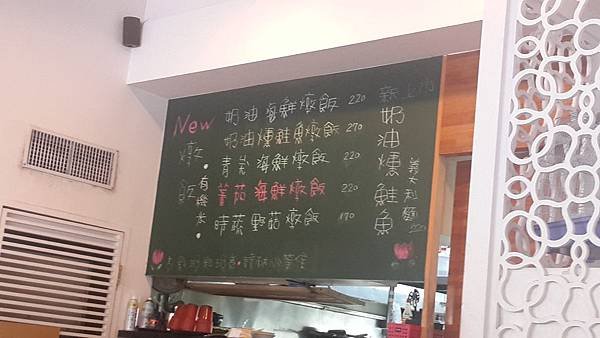 New
奶油海鮮燉飯 220
奶油燻鮭魚燉飯 270
青醬海鮮燉飯 220
蕃茄海鮮燉飯 220
時蔬野菇燉飯 170
燉飯
有機米
新上市
奶油燻鮭魚
義大利麵
220